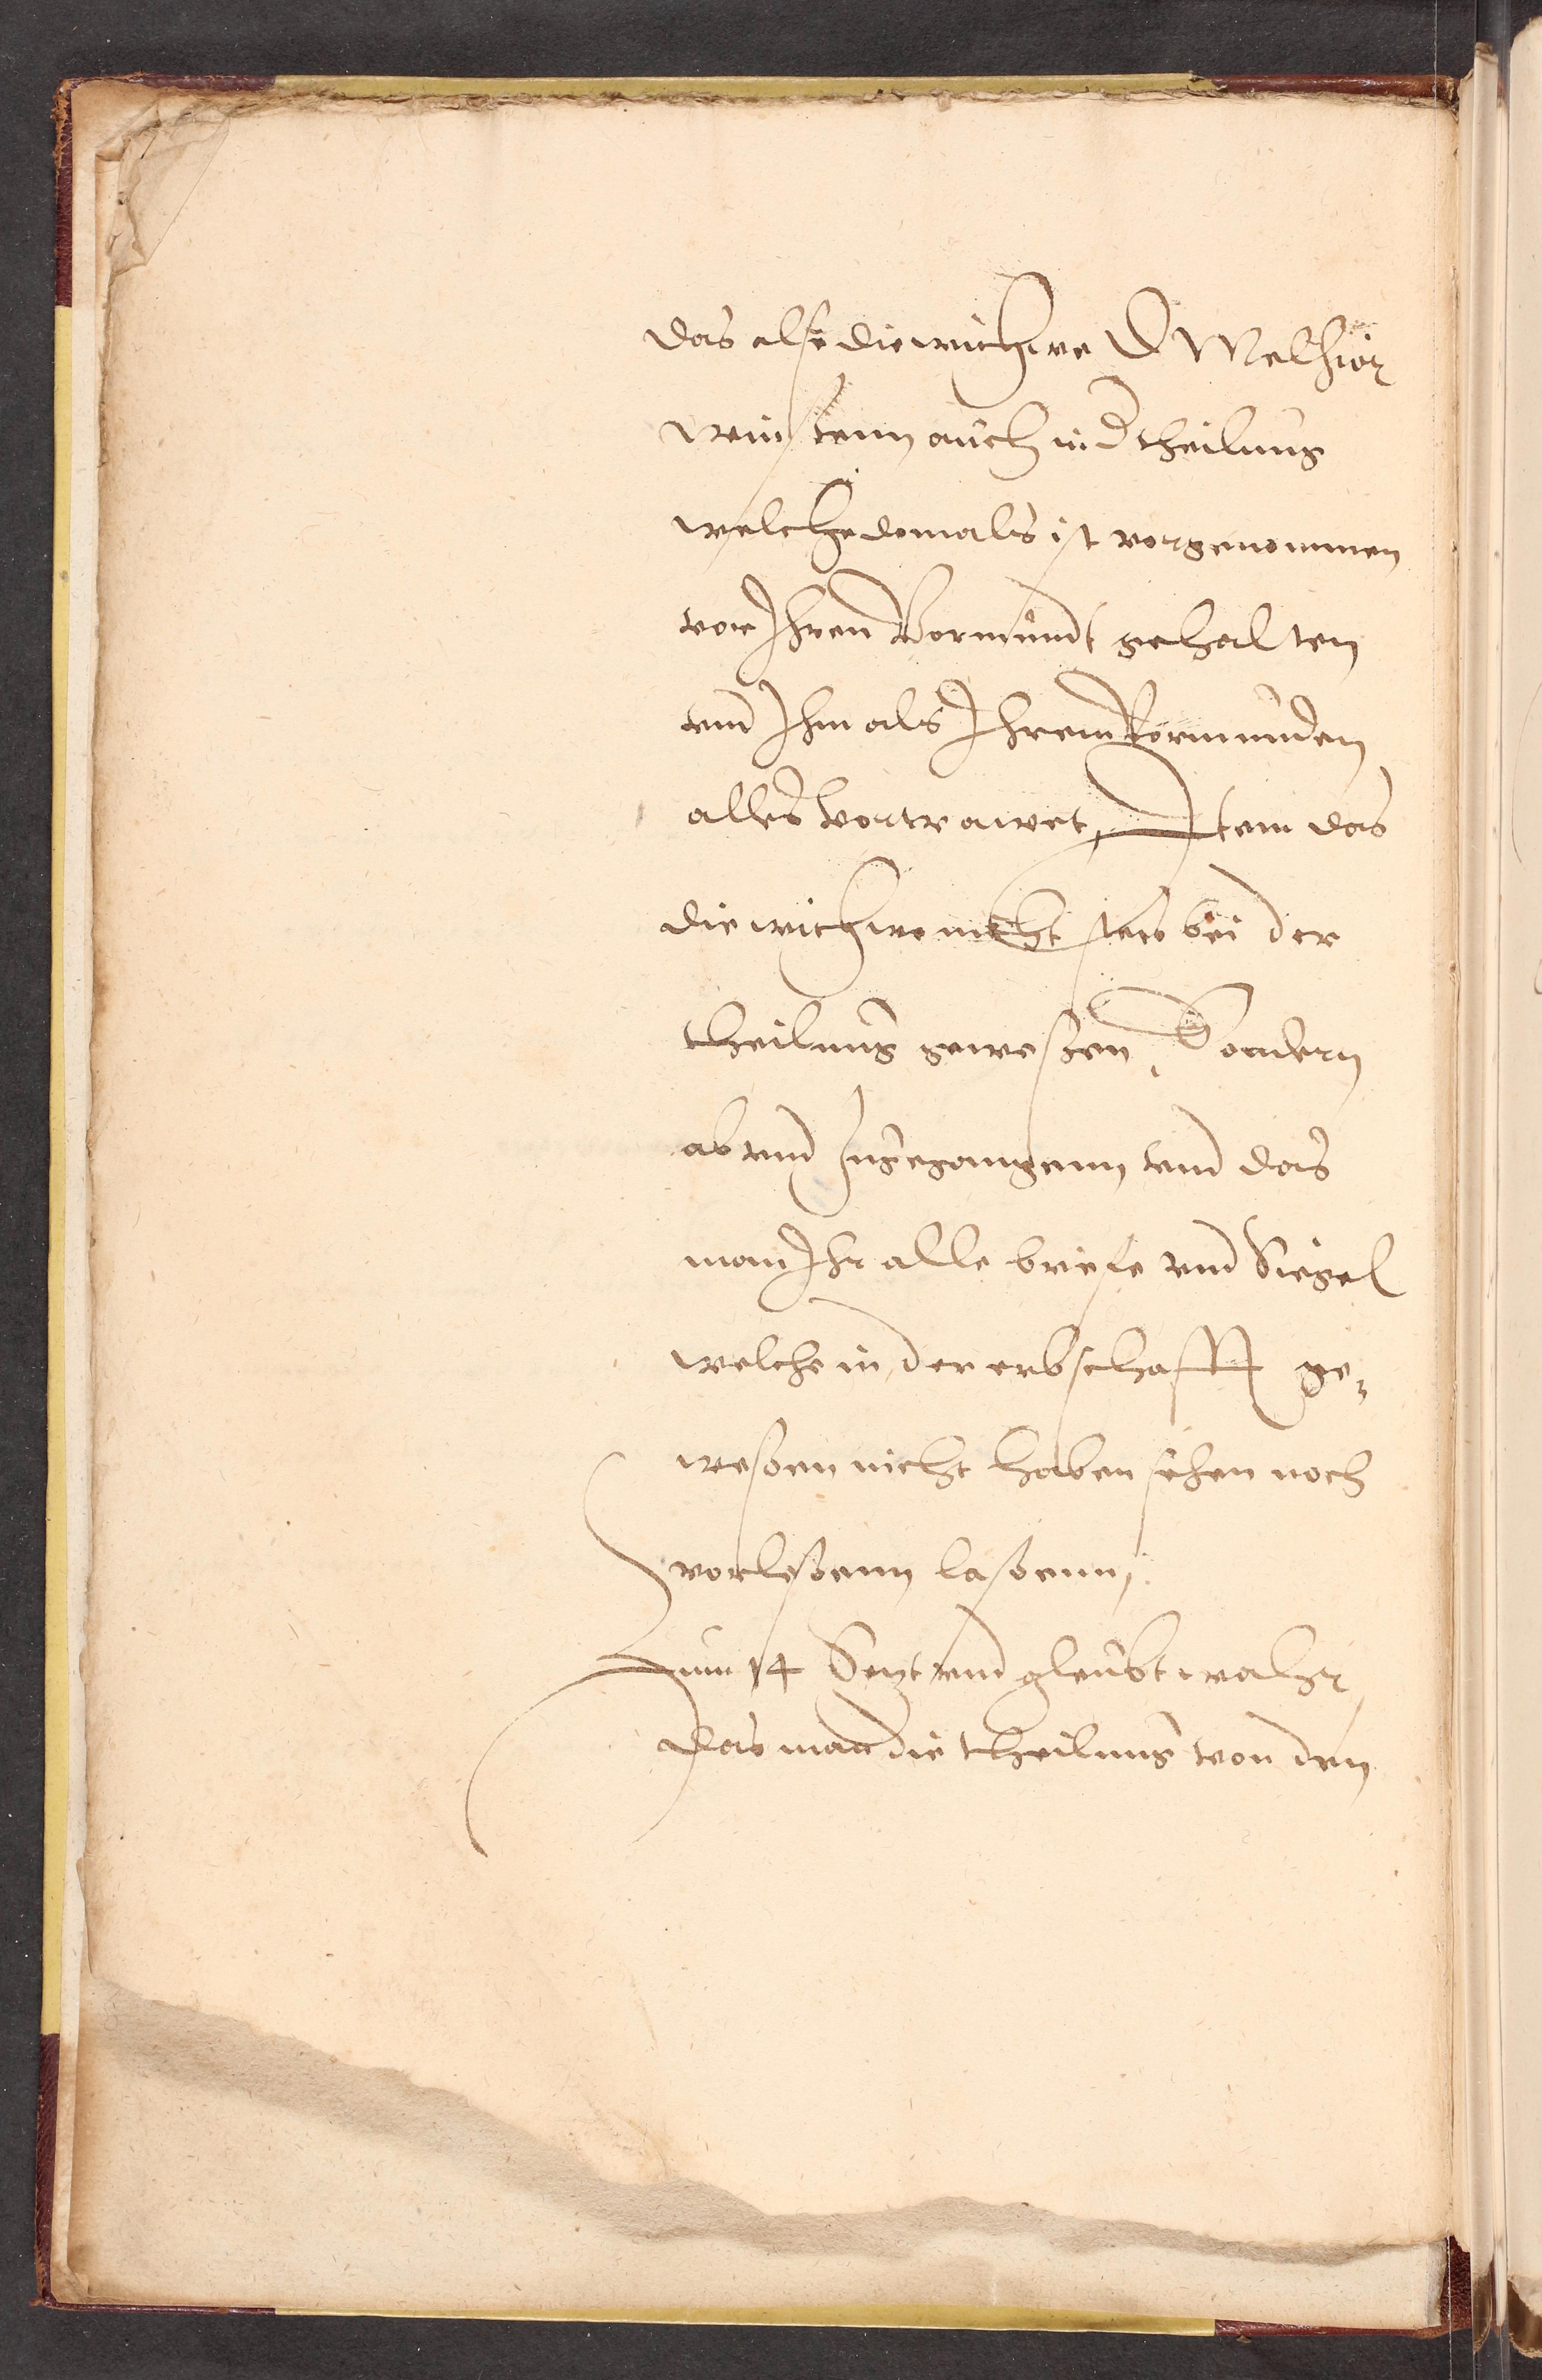 das also die withwe D Melhior
winstenn auch in d theilung
welche domals ist vorgenommen
vor Ihren Vormundt gehalten
vnd Ihm als Ihrem Vormunden
alles vortrawet, Item das
die withwe nicht stets bei der
theilung geweßen, Sondern
ab vnd zugegangenn vnd das
man Ihr alle briefe vnd Siegel
welche in der erbschafft ge,
weßen nicht haben sehen noch
vorleßenn laßenn,
Zum 14 Setzt vnd gleubt wahr
das man die theilung von den